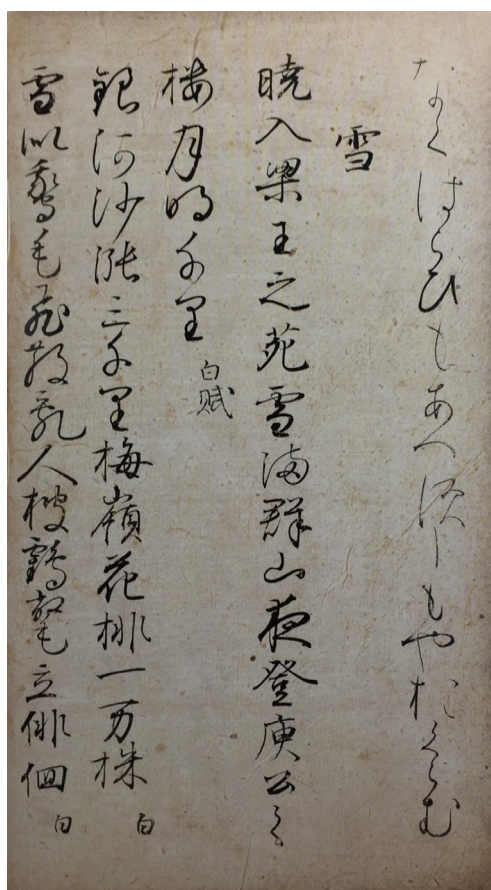 なくはらひもあへすしもやおくらむ
雪
曉入梁王之苑雪満群山夜登庾公之
楼月明千里 白賦
銀河沙漲三千里梅嶺花排一万株 白
雪似鵞毛飛散乱人被鶴氅立俳佪 白